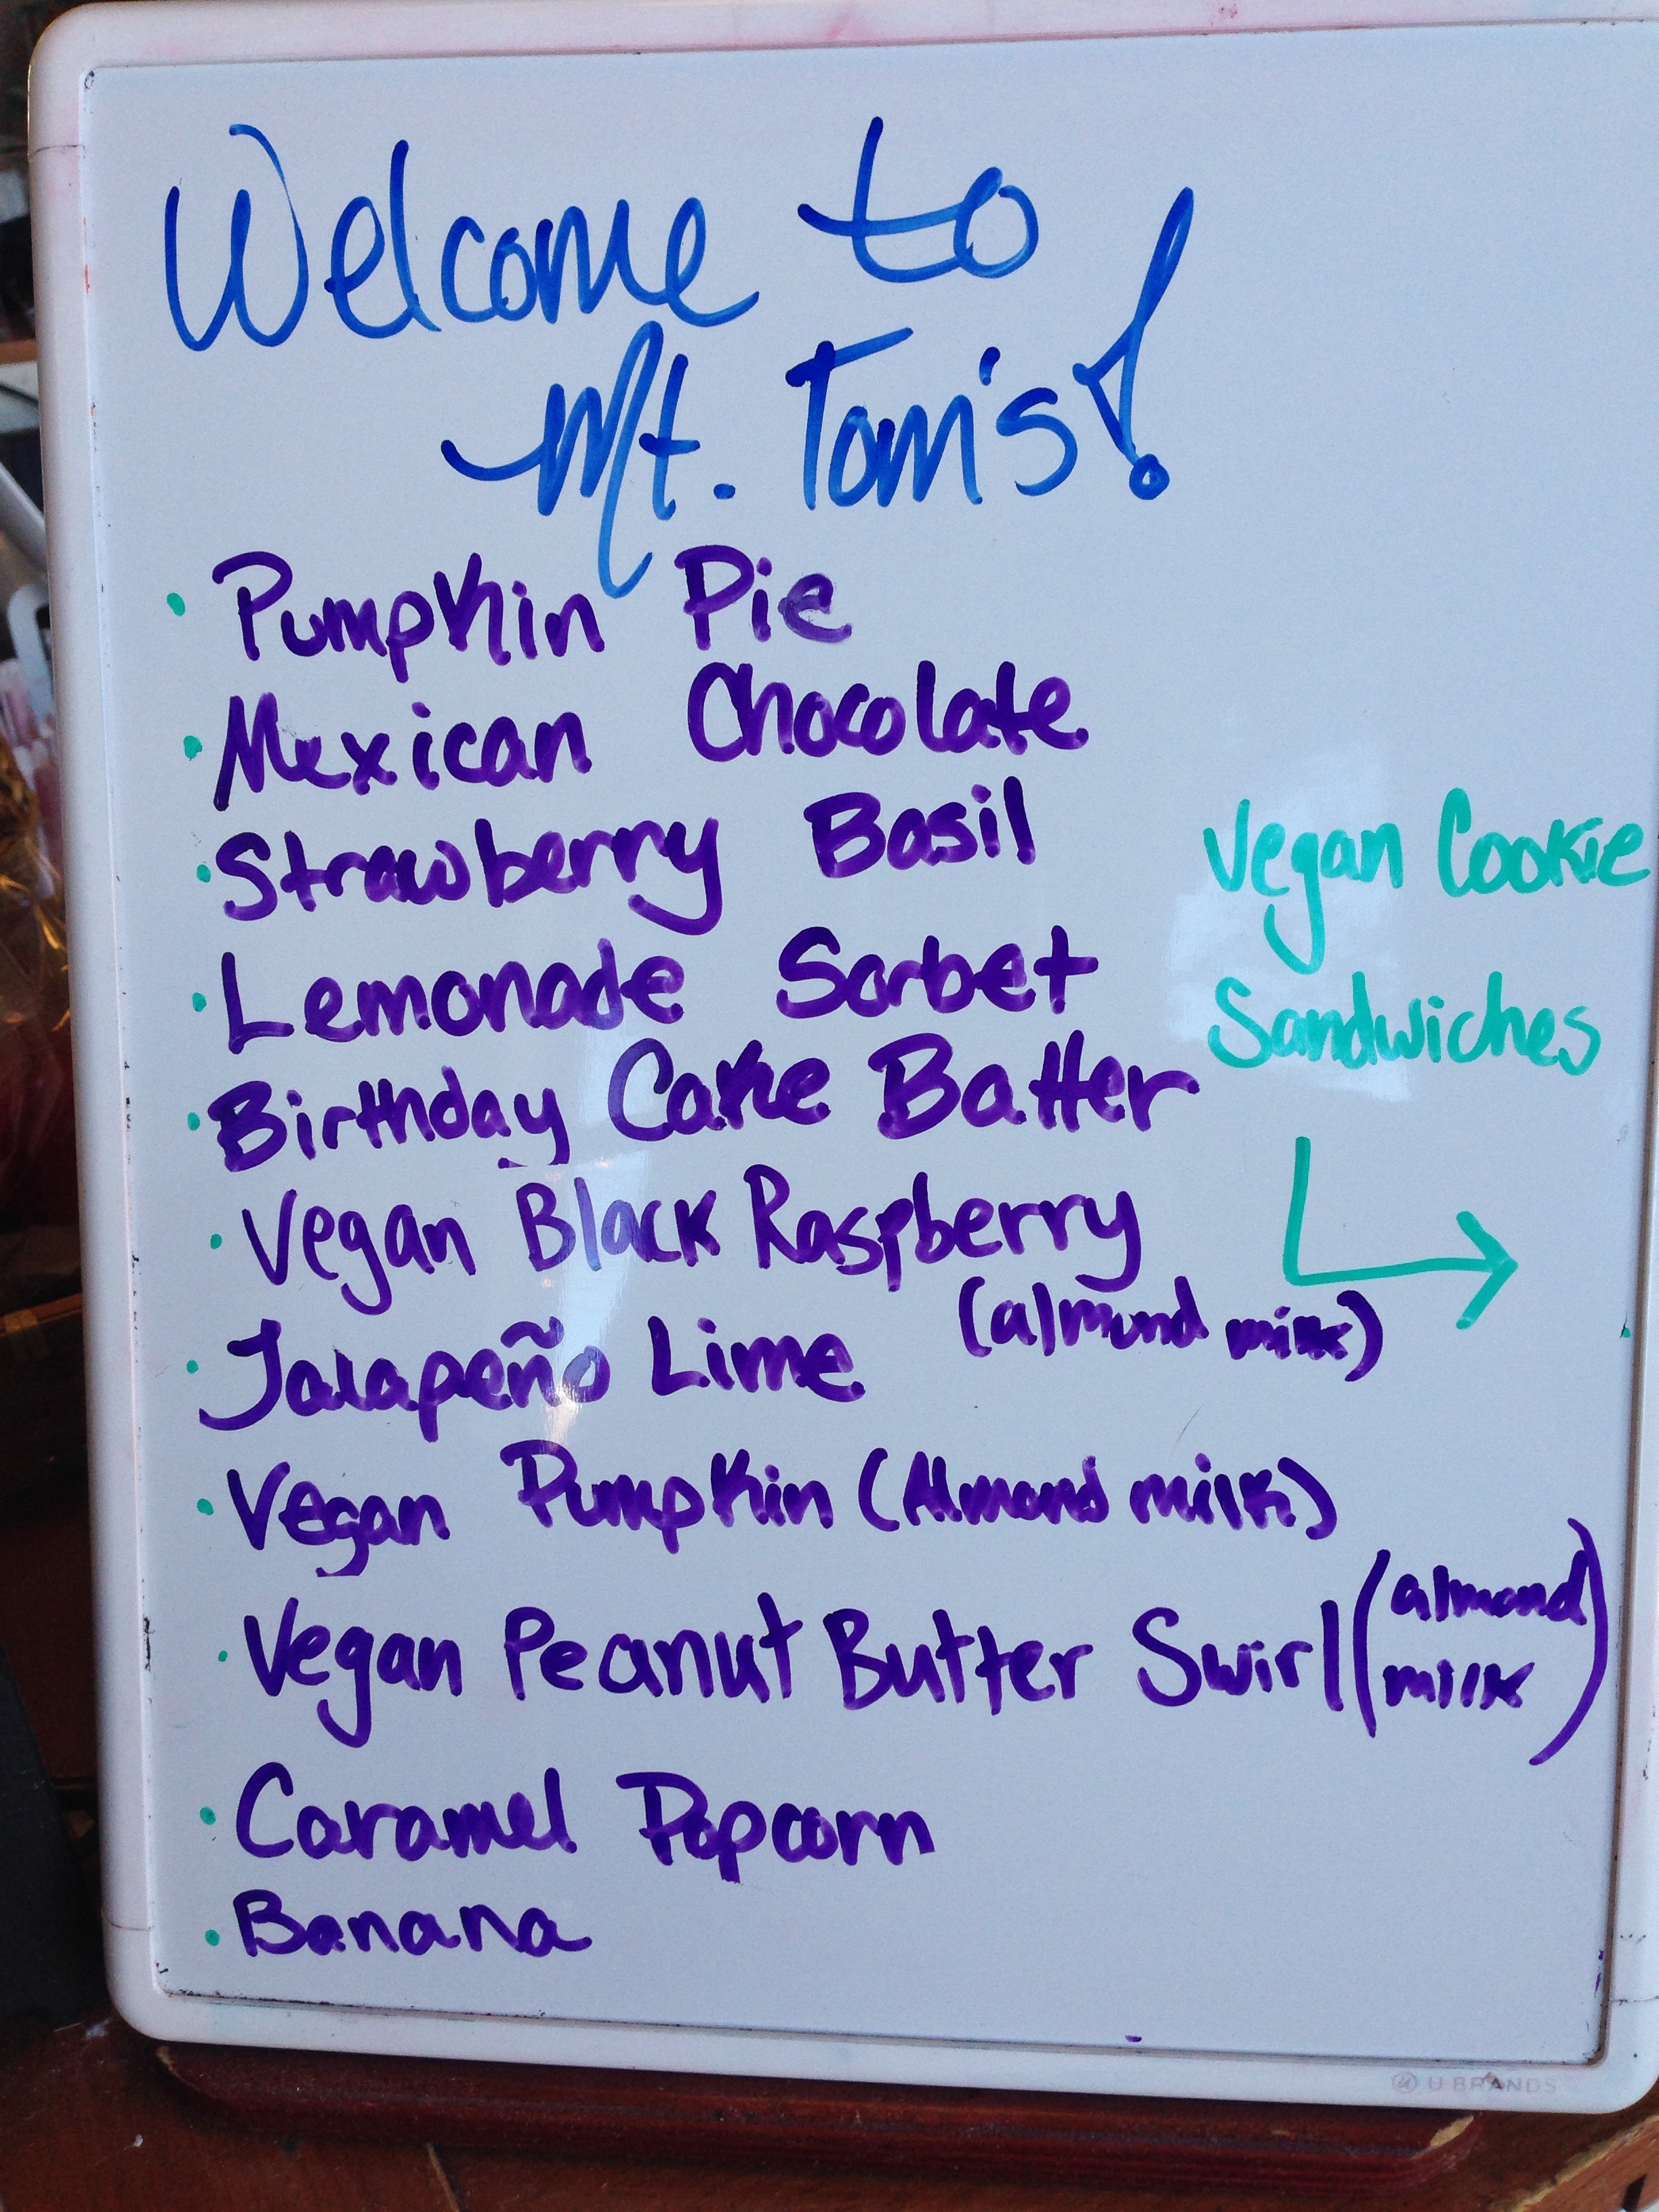 Welcome to
Mt. Tom's!
• Pumpkin Pie
• Mexican Chocolate
• Strawberry Basil
• Lemonade Sorbet
• Birthday Cake Batter
• Vegan Black Raspberry
(almond milk)
• Jalapeño Lime
• Vegan Pumpkin (Almond milk)
• Vegan Peanut Butter Swirl (almond milk)
• Caramel Popcorn
• Banana
Vegan Cookie
Sandwiches
U BRANDS